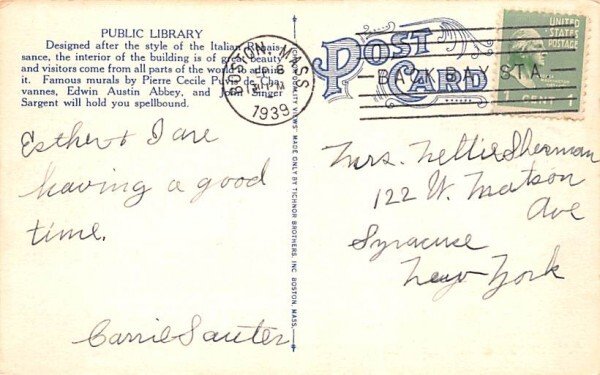 PUBLIC LIBRARY
Designed after the style of the Italian Renais-
sance, the interior of the building is of great beauty
and visitors come from all parts of the world to admire
it. Famous murals by Pierre Cecile Puvis de Cha-
vannes, Edwin Austin Abbey, and John Singer
Sargent will hold you spellbound.
Esther & I are
having a good
time.
Carrie Sauter
QUALITY VIEWS" MADE ONLY BY TICHNOR BROTHERS, INC. BOSTON, MASS.
BOSTON, MASS
1939
POST
CARD
BACK BAY STA.
UNITED
STATES
POSTAGE
1 CENT 1
Mrs. Nellie Sherman
122 W. Matson
Ave
Syracuse
New York